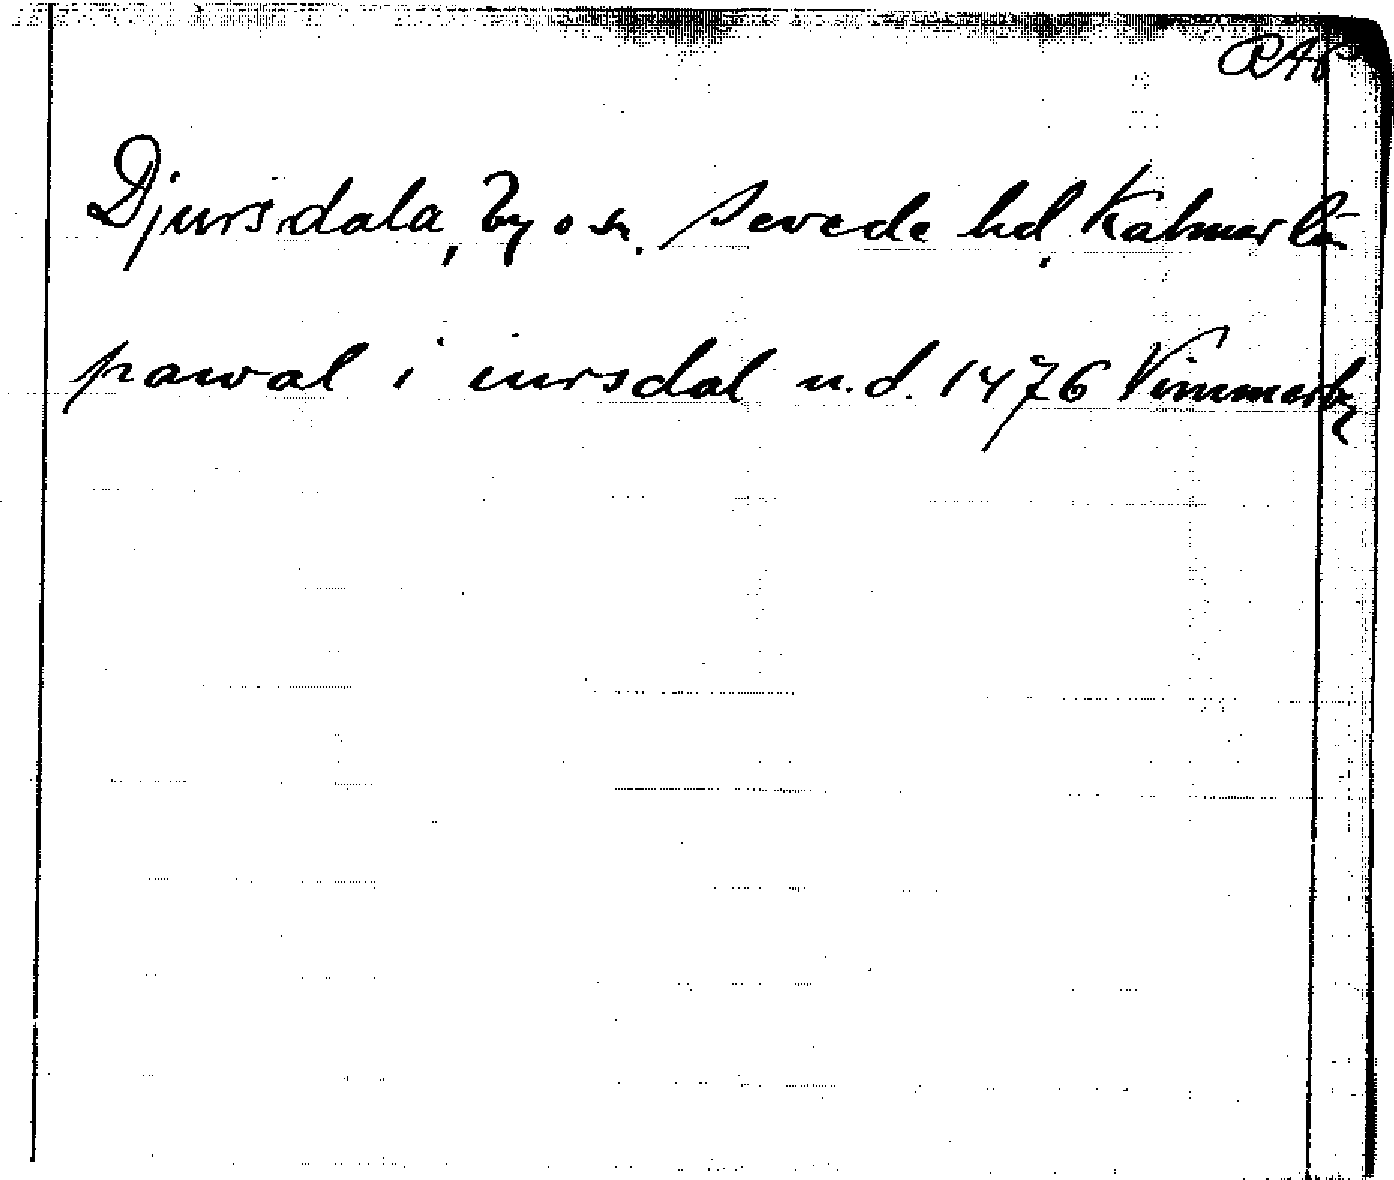 RAP
Djursdala, by o sn. Sevede hd, Kalmar län
pawal i iursdal u.d. 1476 Vimmerby